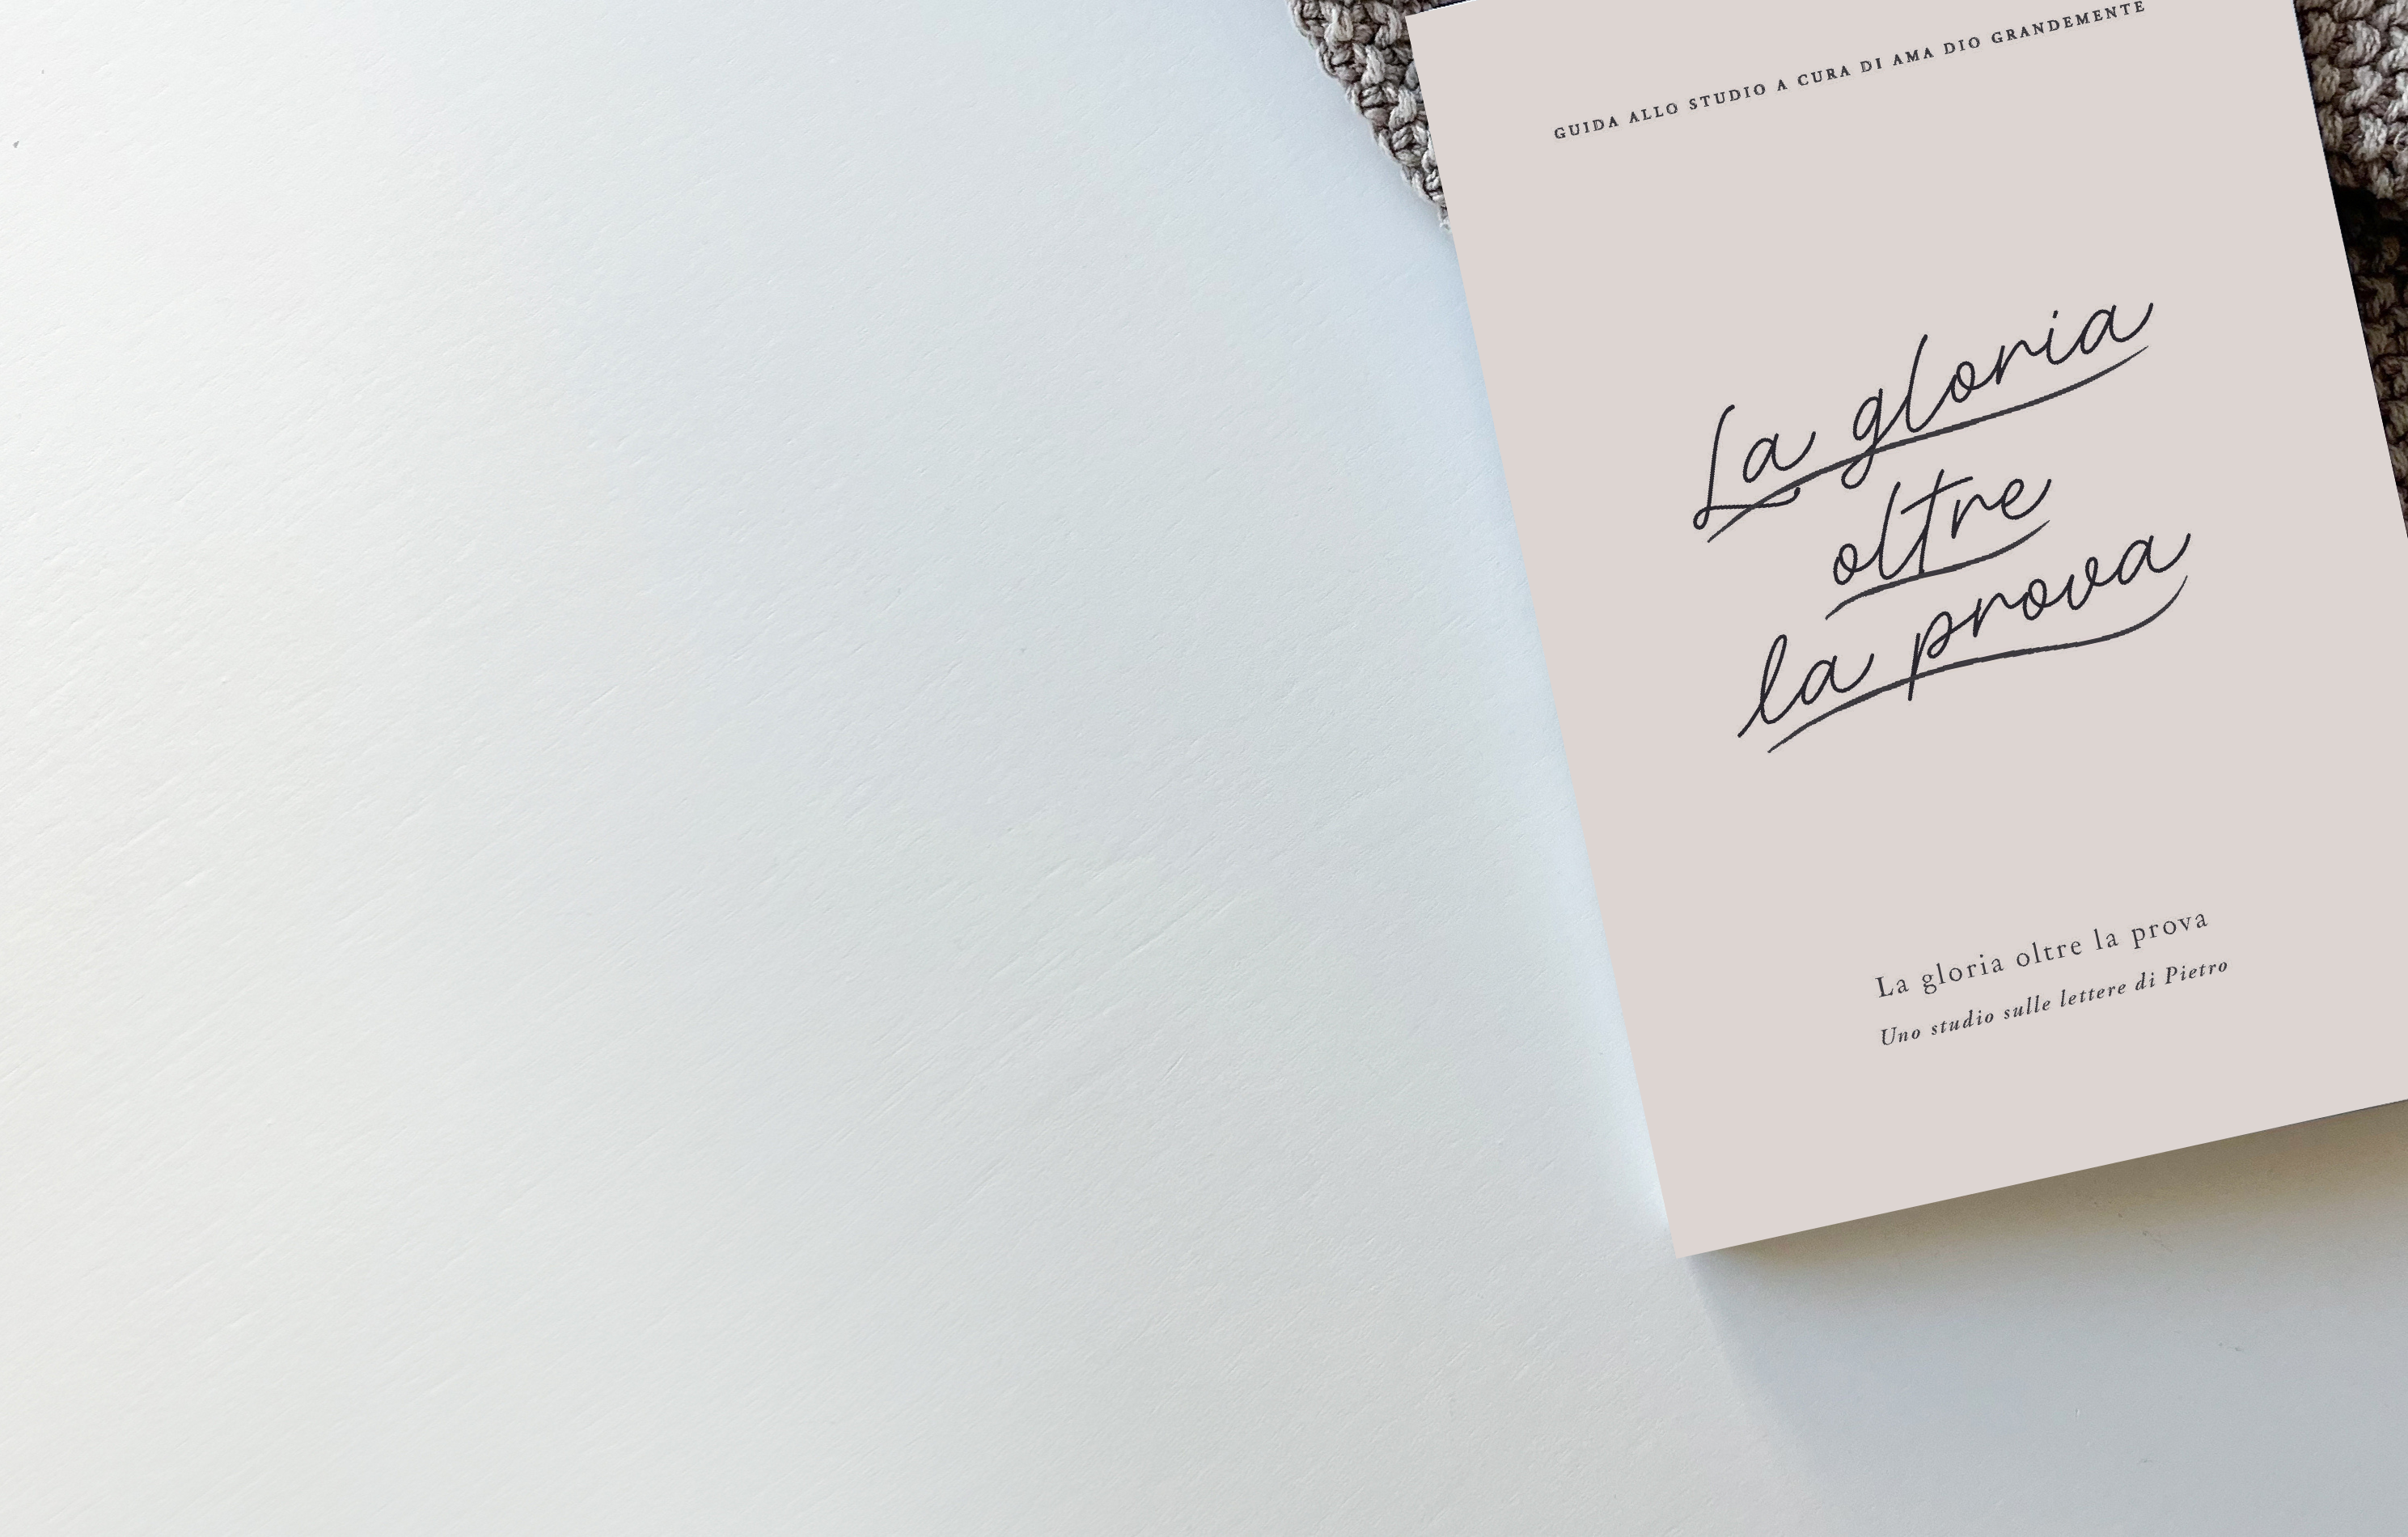 GUIDA ALLO STUDIO A CURA DI AMA DIO GRANDEMENTE
La gloria
oltre
la prova
La gloria oltre la prova
Uno studio sulle lettere di Pietro